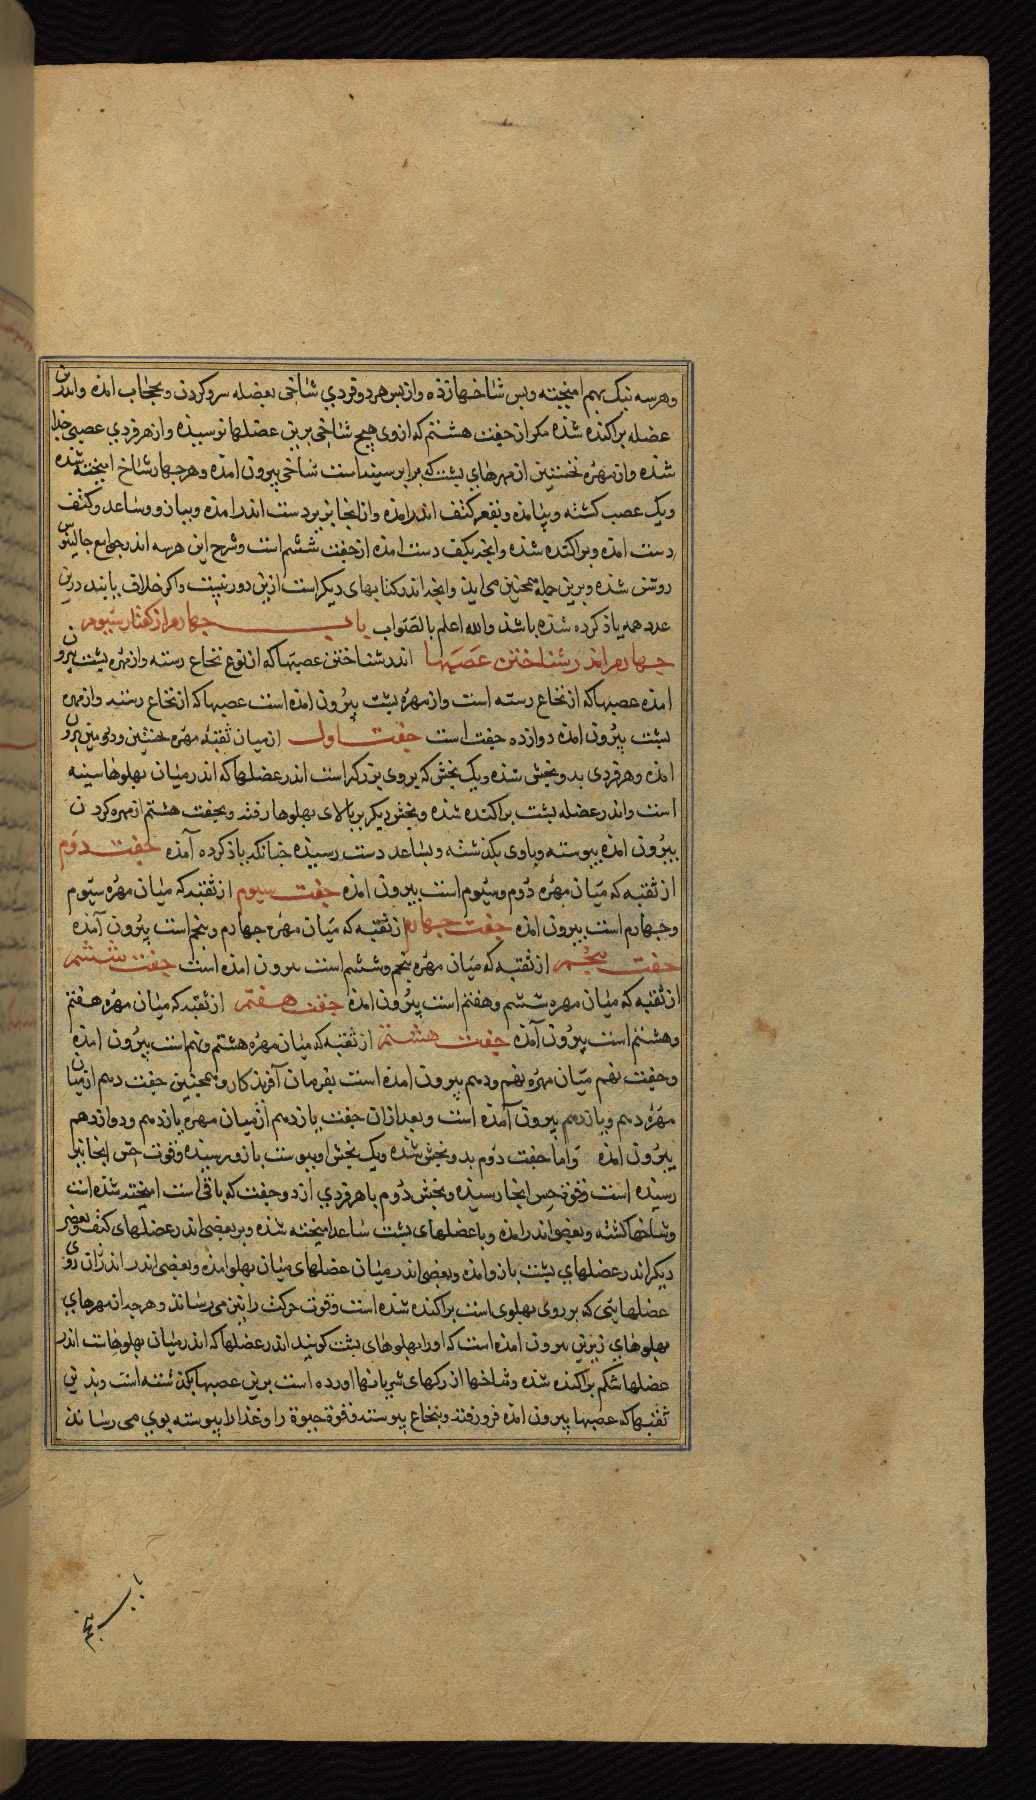 وهرسه نیک بهم امیخته وبس شاخها زده واز بس هر دو فردی شاخی بعضله سر وکردن وبحجاب امده واندرین
عضله براکنده شده مکر از جفت هشتم که ازوی هیچ شاخی برین عضلها نرسیده واز هر فردی عصبی جدا
شده واز مهره نخستین از مهرهای بشت که برابر سینه است شاخی بیرون امده وهر جهار شاخ امیخته شده
ویک عصب کشته وبیامده وبقعر کتف اندر امده واز انجا بزیر دست اندر امده وببازو وساعد وکتف
دست امده وبراکنده شده وانجه بکف دست امده از جفت ششم است وشرح این هرسه اندر جوامع جالینوس
روشن شده وبرین جمله همجنین می اید وانجه اندر کتابهای دیکر است ازین دور نیست واکر خلاف یابند درین
عدد همه یاذ کرده شده باشد والله اعلم بالصواب باب جهارم از کفتار سیوم
جهارم اندر شناختن عصبها اندر شناختن عصبها که از نوع نخاع رسته واز مهره بشت بیرون
امده عصبها که از نخاع رسته است واز مهره بشت بیرون امده است عصبها که از نخاع رسته واز مهره
بشت بیرون امده دوازده جفت است جفت اول از میان ثقبه مهره نخستین ودومین بیرون
امده وهر فردی بدو بخش شده ویک بخش که بروی بزرکتر است اندر عضلها که اندر میان بهلوها سینه
است واندر عضله بشت براکنده شده وبخش دیکر بر بالای بهلوها رفته وبجفت هشتم از مهره کردن
بیرون امده بیوسته وباوی بکذشته وبساعد دست رسیده جنانکه یاذ کرده آمده جفت دوم
از ثقبه که میان مهره دوم وسیوم است بیرون امده جفت سیوم از ثقبه که میان مهره سیوم
وجهارم است بیرون امده جفت جهارم از ثقبه که میان مهره جهارم وبنجم است بیرون آمده
جفت بنجم از ثقبه که میان مهره بنجم وششم است بیرون امده است جفت ششم
از ثقبه که میان مهره ششم وهفتم است بیرون امده جفت هفتم از ثقبه که میان مهره هفتم
وهشتم است بیرون آمده جفت هشتم از ثقبه که میان مهره هشتم ونهم است بیرون امده
وجفت نهم میان مهره نهم ودهم بیرون امده است بفرمان آفریدکار وهمجنین جفت دهم از میان
مهره دهم ویازدهم بیرون آمده است وبعد ازان جفت یازدهم از میان مهره یازدهم ودوازدهم
بیرون امده واما جفت دوم بدو بخش شده ویک بخش او ببوست بازو رسیده وقوت حس انجا نیز
رسیده است وقوة حس انجا رسیده وبخش دوم با هر فردی از دو جفت که باقی است امیخته شده است
وشاخها کشته وبعضی اندر امده وبا عضلهای بشت ساعد امیخته شده وبر بعضی اندر عضلهای کتف وبعضی
دیکر اندر عضلهای بشت بازو امده وبعضی اندر میان عضلهای میان بهلو امده وبعضی اندر اندران روی
عضلهایی که بر روی بهلوی است براکنده شده است وقوت حرکت را نیز می رساند وهرجه از مهرهای
بهلوهای زیرین بیرون امده است که اورا بهلوهای بشت کویند اندر عضلها که اندر میان بهلوهاست اندر
عضلها شکم براکنده شده وشاخها از رکهای شریانها اورده است برین عصبها بکذشته است وبدین
ثقبها که عصبها بیرون امده فرو رفته وبنخاع بیوسته وقوة حیوة را وغذا را بیوسته بوی می رساند
باب بنجم